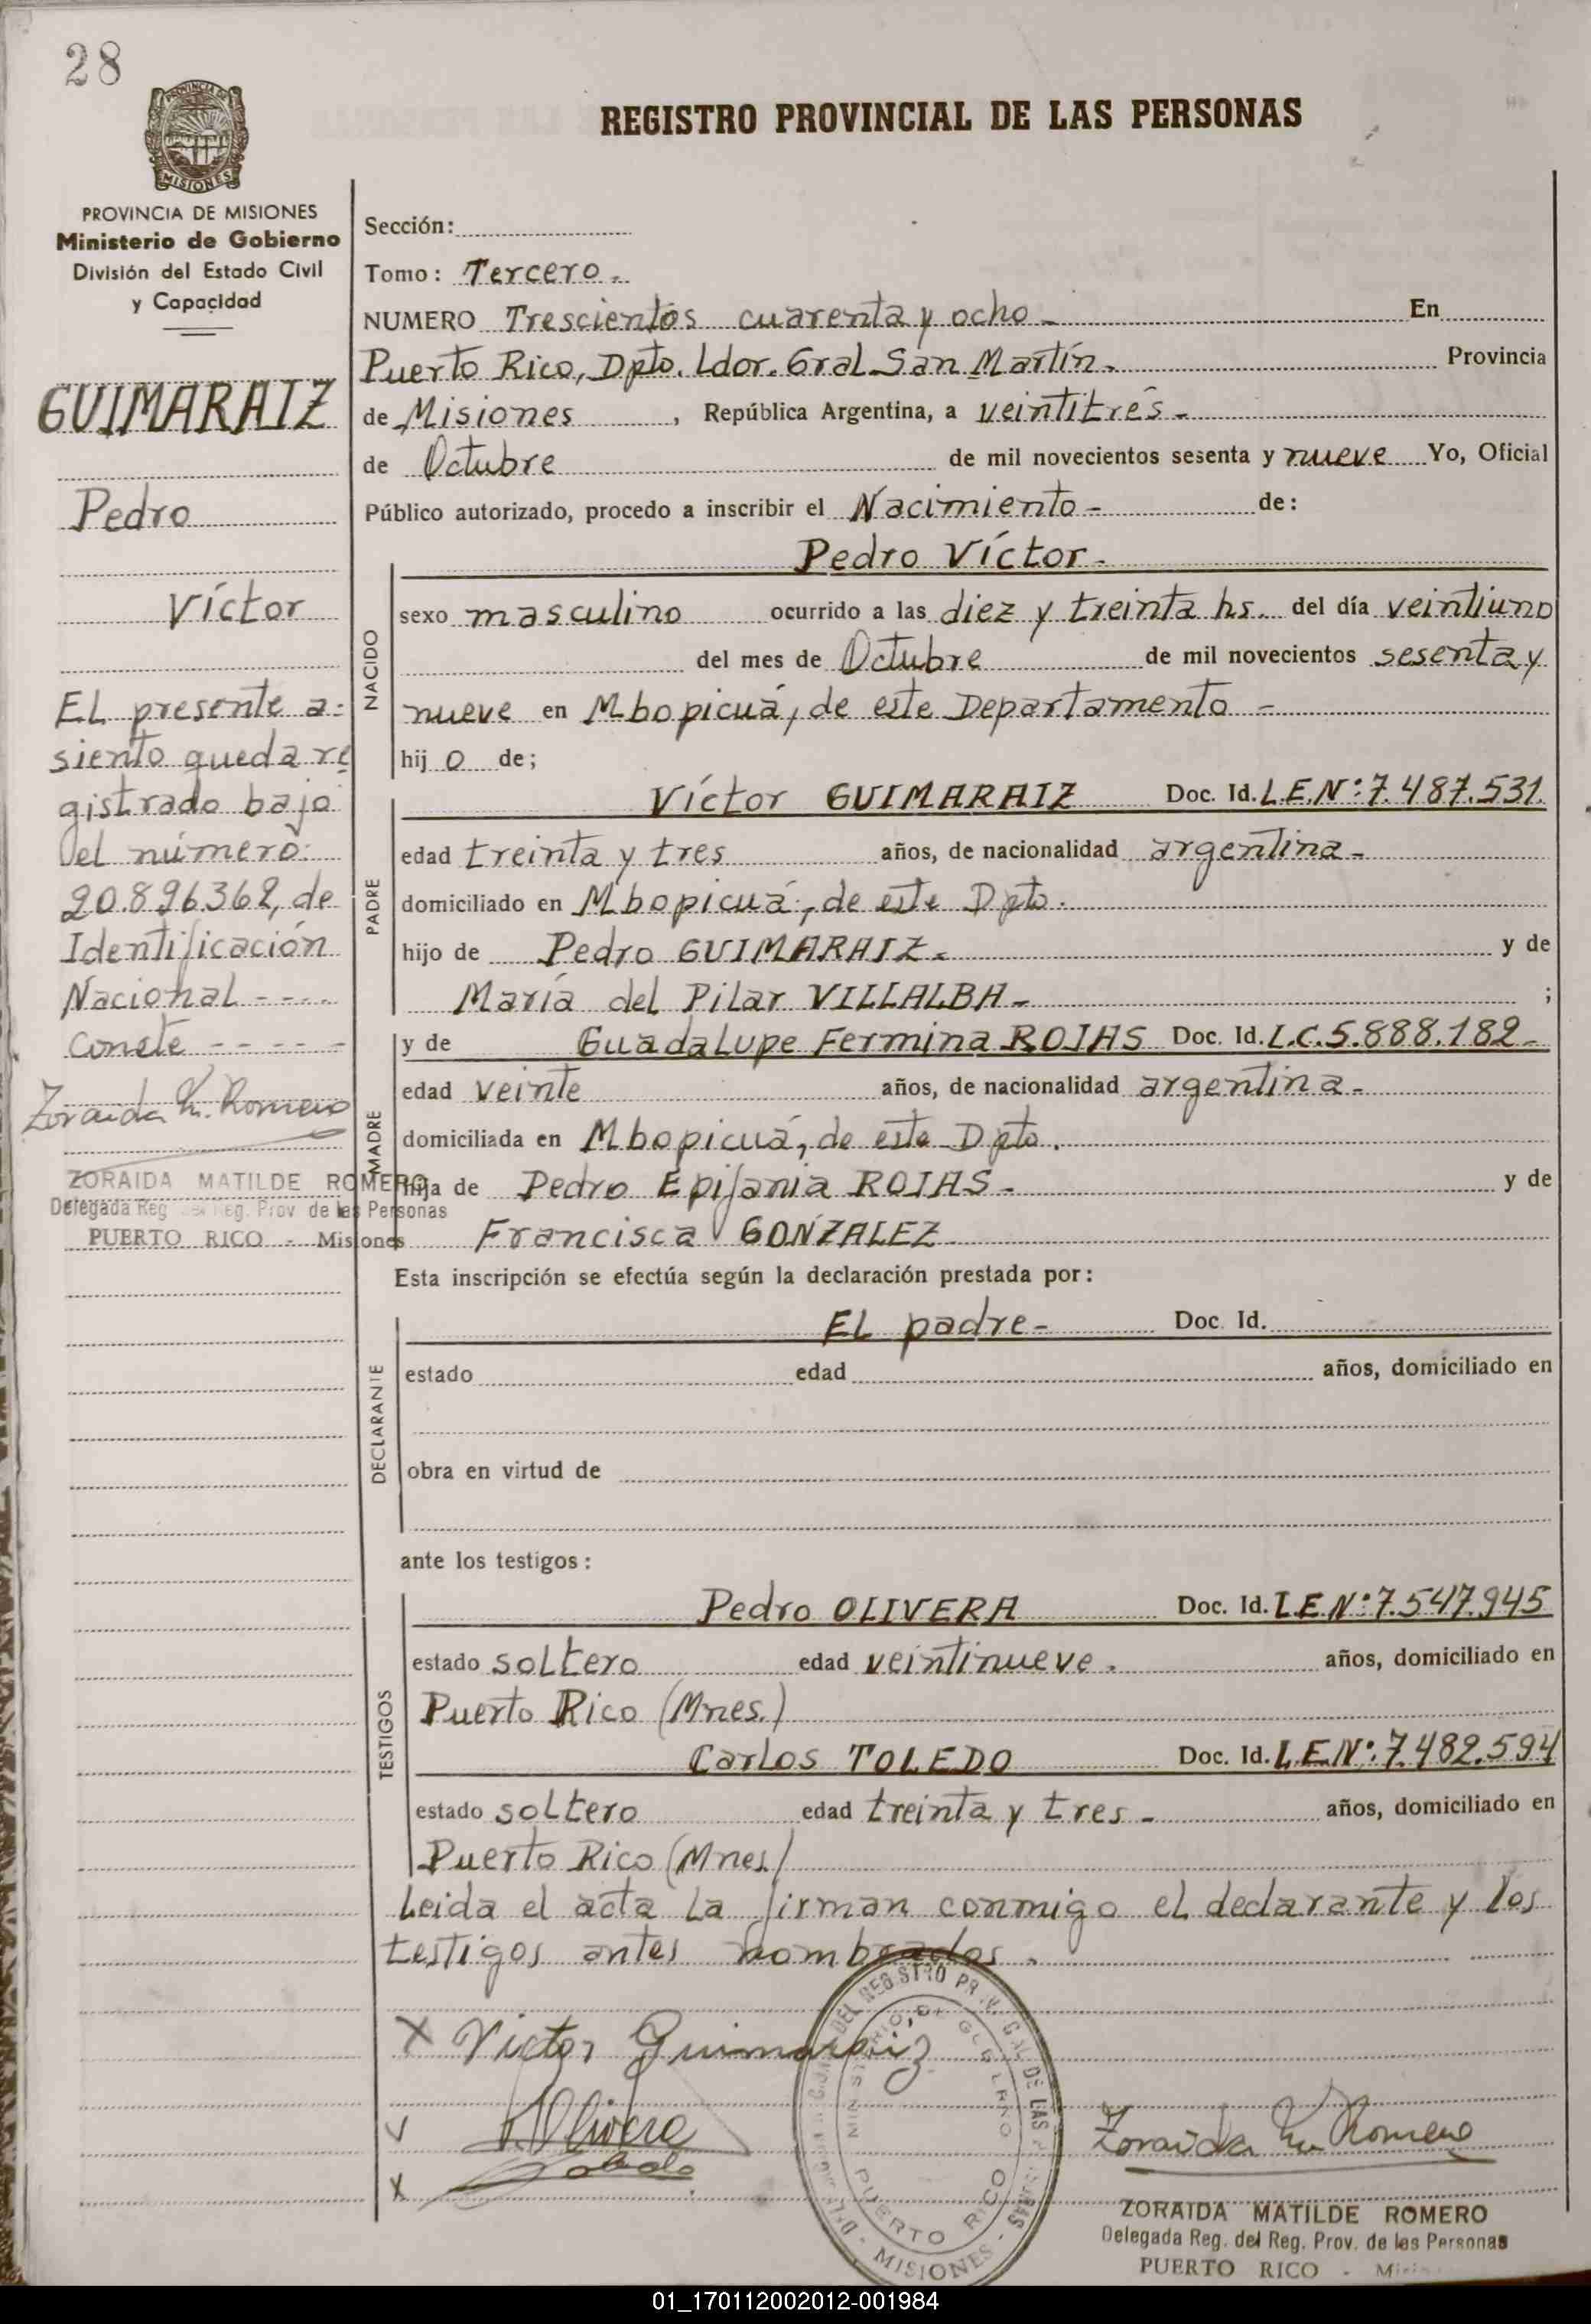 28
REGISTRO PROVINCIAL DE LAS PERSONAS
PROVINCIA DE
MISIONES
PROVINCIA DE MISIONES
Ministerio de Gobierno
División del Estado Civil
y Capacidad
GUIMARAIZ
Pedro
Víctor
EL presente a-
siento queda re
gistrado bajo
el número:
20.896.362, de
Identificación
Nacional ----
Conste -----
Zoraida M. Romero
ZORAIDA MATILDE ROMERO
Delegada Reg. del Reg. Prov de las Personas
PUERTO RICO - Misiones
Sección:
Tomo: Tercero.-
NUMERO Trescientos cuarenta y ocho - En
Puerto Rico, Dpto. Ldor. Gral. San Martín.- Provincia
de Misiones, República Argentina, a veintitrés.-
de Octubre de mil novecientos sesenta y nueve Yo, Oficial
Público autorizado, procedo a inscribir el Nacimiento - de:
Pedro Víctor.-
NACIDO
sexo masculino ocurrido a las diez y treinta hs. del día veintiuno
del mes de Octubre de mil novecientos sesenta y
nueve en Mbopicuá, de este Departamento -
hijo de;
Víctor GUIMARAIZ Doc. Id. L.E.Nº:7.487.531.
PADRE
edad treinta y tres años, de nacionalidad argentina-
domiciliado en Mbopicuá, de este Dpto.
hijo de Pedro GUIMARAIZ.- y de
María del Pilar VILLALBA- ;
y de Guadalupe Fermina ROJAS Doc. Id. L.C.5.888.182-
MADRE
edad veinte años, de nacionalidad argentina-
domiciliada en Mbopicuá, de este Dpto.
hija de Pedro Epifania ROJAS- y de
Francisca GONZALEZ
Esta inscripción se efectúa según la declaración prestada por:
EL padre- Doc. Id.
DECLARANTE
estado edad años, domiciliado en
obra en virtud de
ante los testigos:
Pedro OLIVERA Doc. Id. L.E.Nº:7.547.945
TESTIGOS
estado soltero edad veintinueve. años, domiciliado en
Puerto Rico (Mnes.)
Carlos TOLEDO Doc. Id. L.E.Nº:7.482.594
estado soltero edad treinta y tres- años, domiciliado en
Puerto Rico (Mnes)
Leida el acta La firman conmigo el declarante y los
testigos antes nombrados.
X Victor Guimaraiz
Olivera
X Toledo
DEL REGISTRO DE LAS
MINISTERIO DE GOBIERNO
PUERTO RICO
- MISIONES -
Zoraida M. Romero
ZORAIDA MATILDE ROMERO
Delegada Reg. del Reg. Prov. de las Personas
PUERTO RICO -
01_170112002012-001984